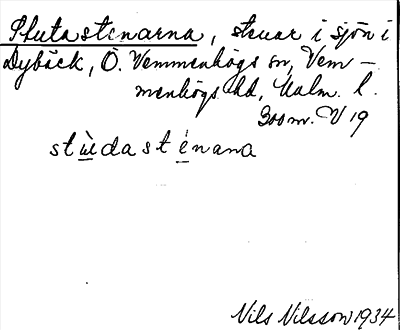 Stutastenarna, stenar i sjön i
Dybäck, Ö. Vemmenhögs sn, Vem-
menhögs hd, Malm. l.
300 m. V 19
stùdasténana
Nils Nilsson 1934